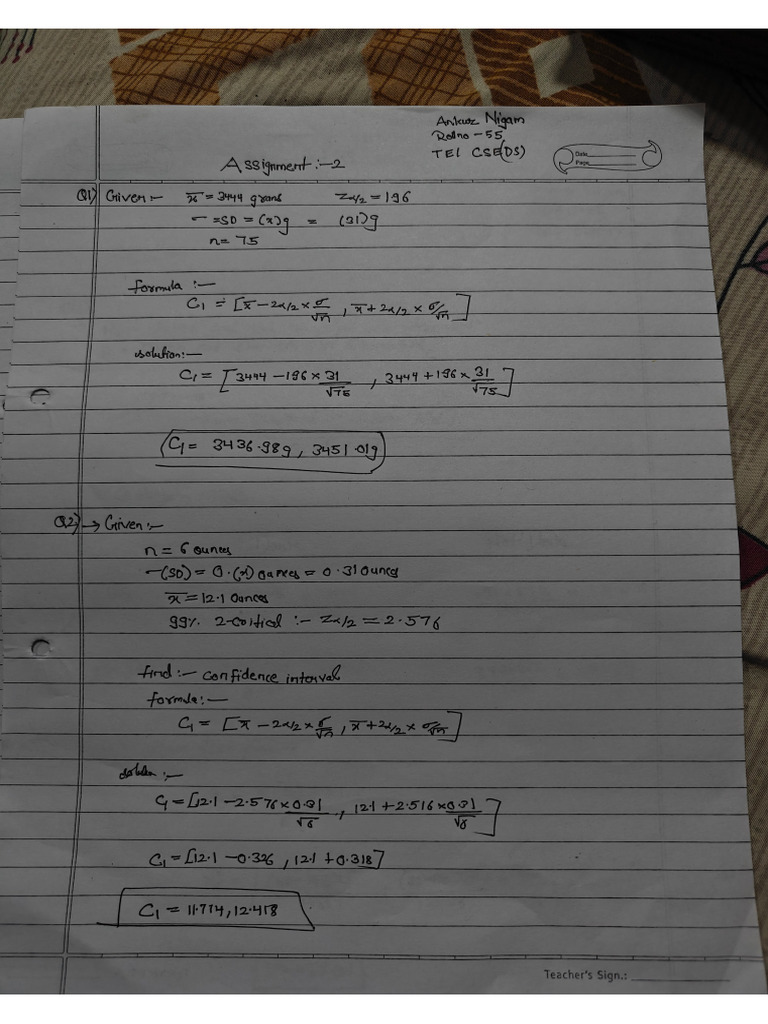 Ankur Nigam
Rollno - 55
TEI CSE(DS)
Date
Page
Assignment:-2
Q1) Given:- x̄ = 3444 grans Zα/2 = 196
σ = SD = (x)g = (31)g
n = 75
formula :-
C1 = [x̄ - zα/2 × σ/√n , x̄ + zα/2 × σ/√n]
solution:-
C1 = [3444 - 196 × 31/√75 , 3444 + 196 × 31/√75]
C1 = 3436.98g, 3451.01g
Q2) → Given:-
n = 6 ounces
σ(SD) = 0.(x) ounces = 0.31 ounces
x̄ = 12.1 ounces
99% z-critical :- Zα/2 = 2.576
find :- confidence interval
formula:-
C1 = [x̄ - zα/2 × σ/√n , x̄ + zα/2 × σ/√n]
C1 = [12.1 - 2.576 × 0.31/√6 , 12.1 + 2.516 × 0.31/√6]
C1 = [12.1 - 0.326 , 12.1 + 0.318]
C1 = 11.774, 12.418
Teacher's Sign.: